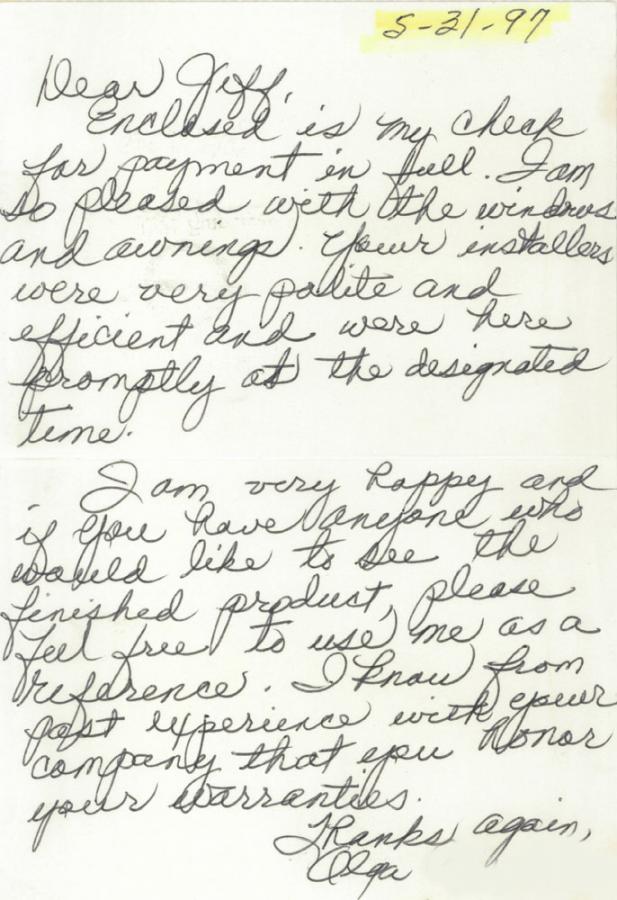 5-21-97
Dear Jeff,
Enclosed is my check
for payment in full. I am
so pleased with the windows
and awnings. Your installers
were very polite and
efficient and were here
promptly at the designated
time.
I am very happy and
if you have anyone who
would like to see the
finished product, please
feel free to use me as a
reference. I know from
past experience with your
company that you honor
your warranties.
Thanks again,
Olga